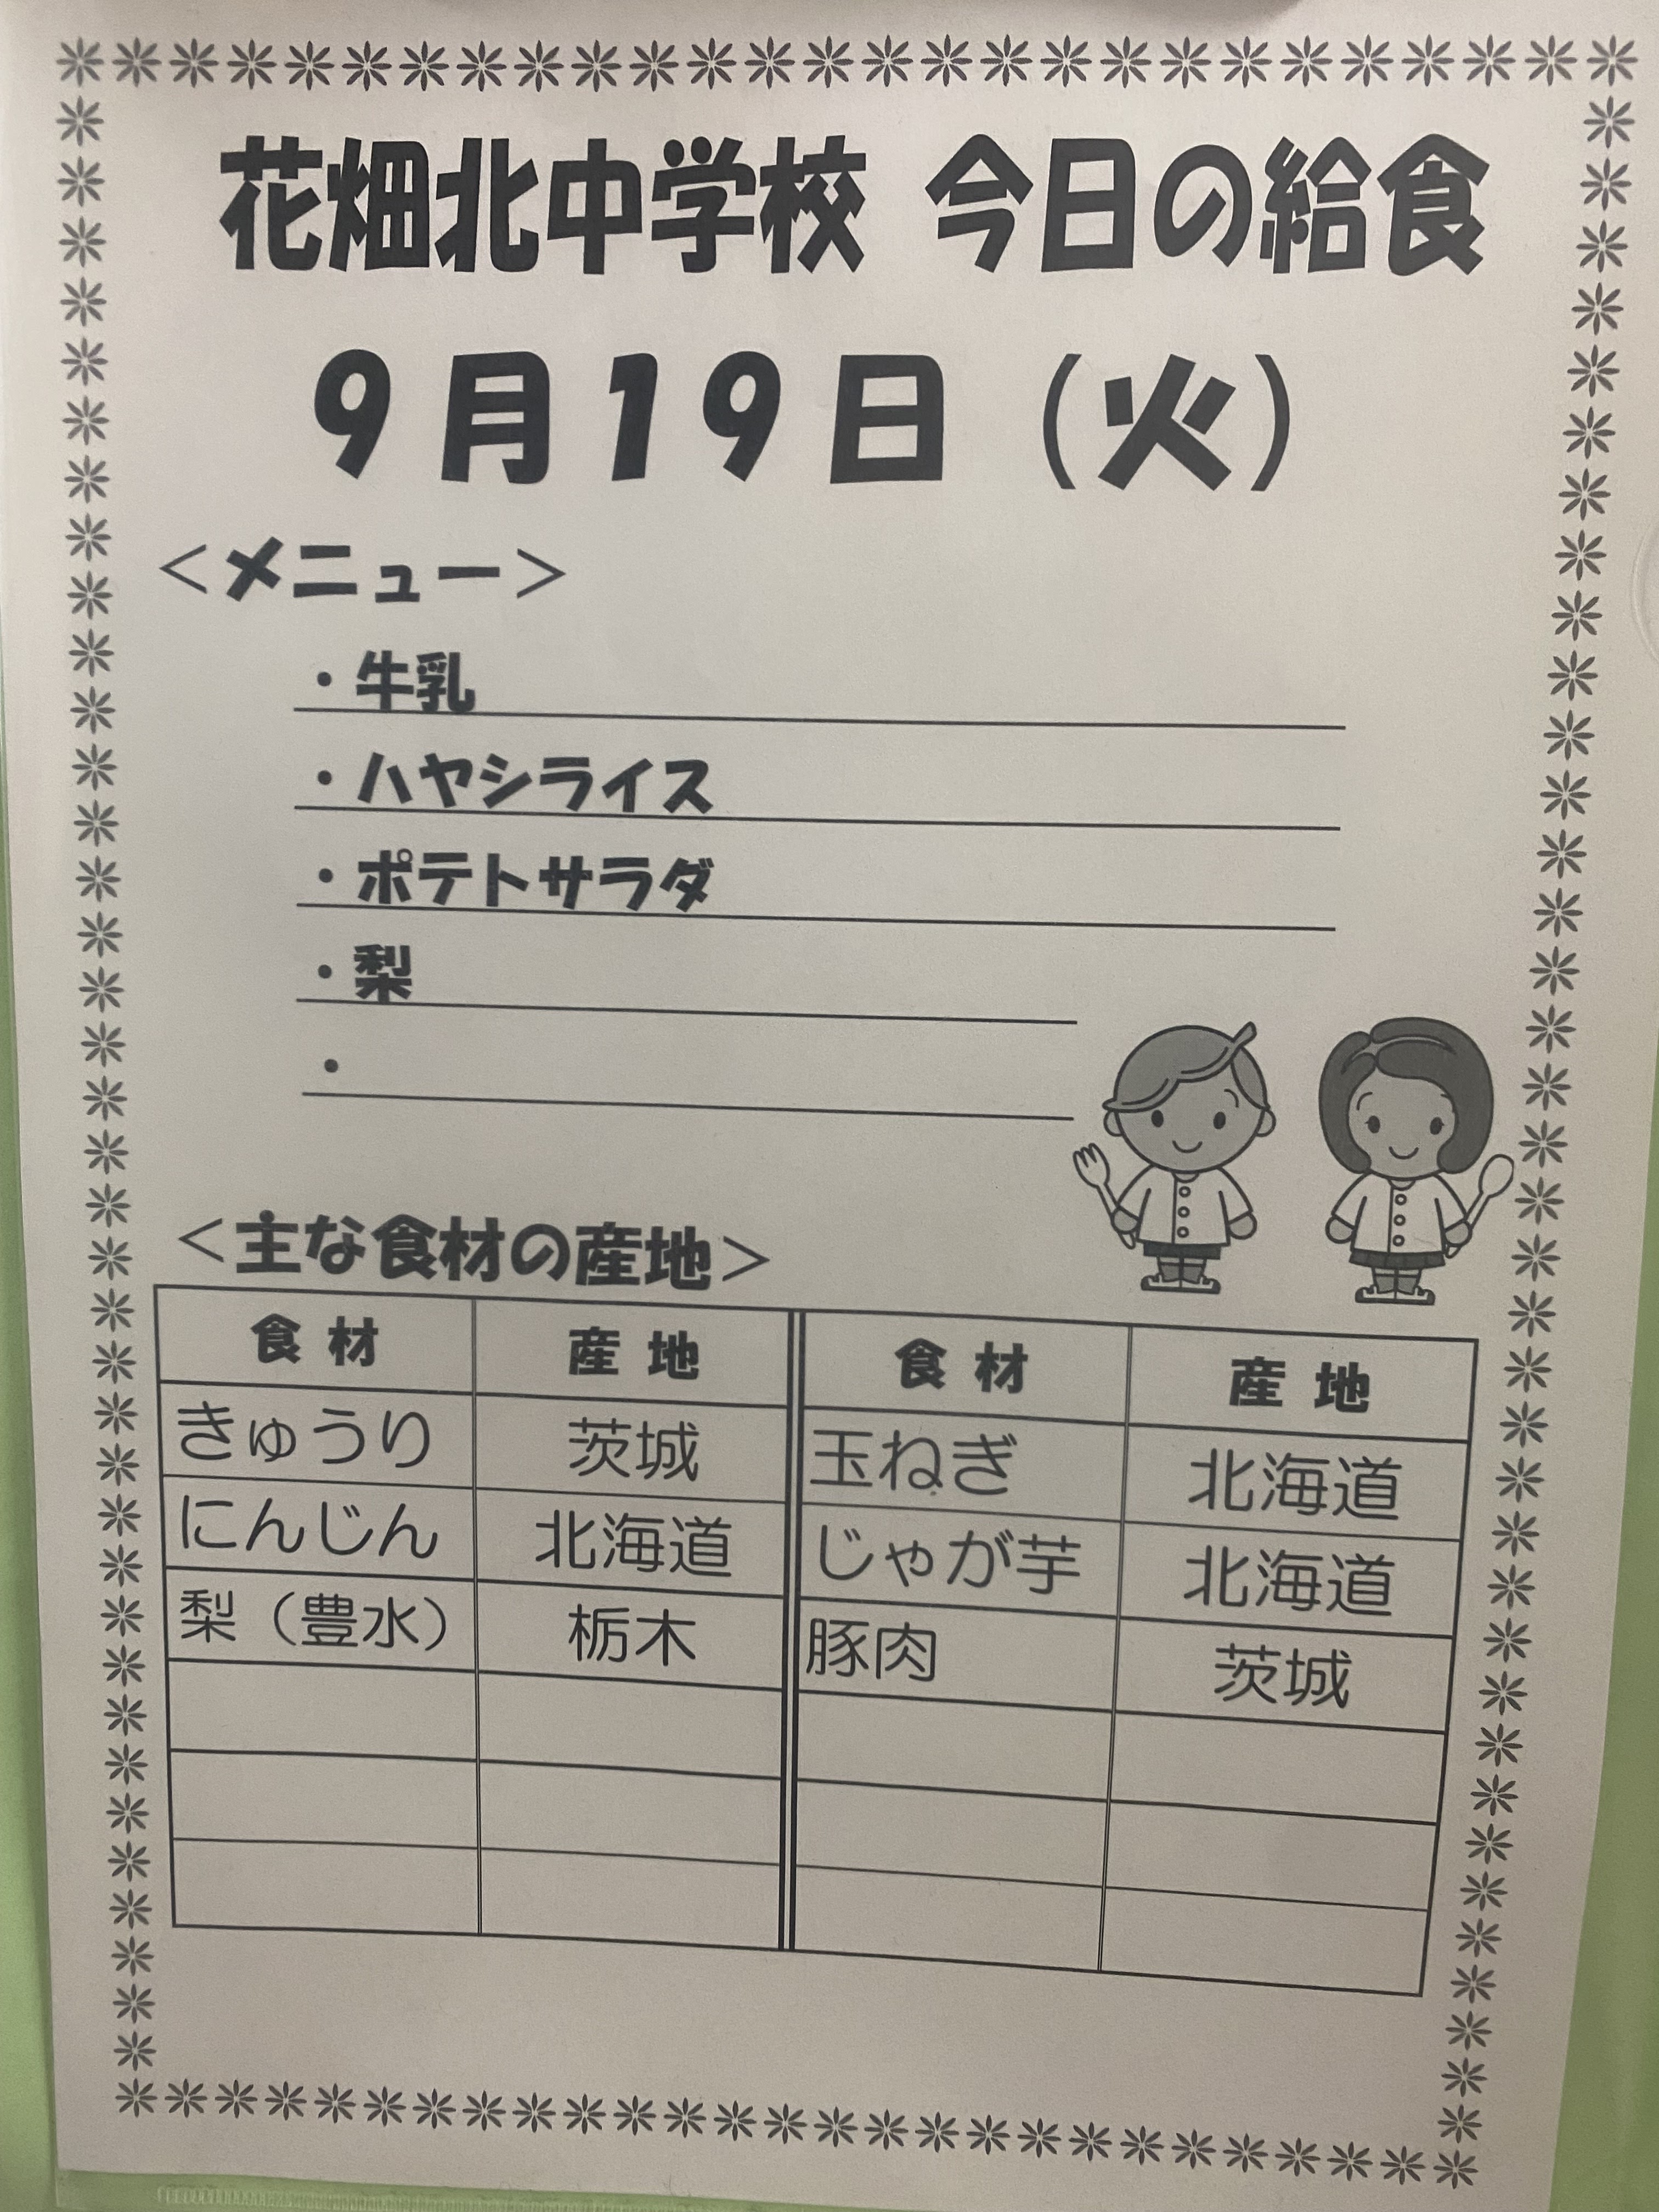 花畑北中学校 今日の給食
9月19日（火）
＜メニュー＞
・牛乳
・ハヤシライス
・ポテトサラダ
・梨
・
＜主な食材の産地＞
食材 産地 食材 産地
きゅうり 茨城 玉ねぎ 北海道
にんじん 北海道 じゃが芋 北海道
梨（豊水） 栃木 豚肉 茨城